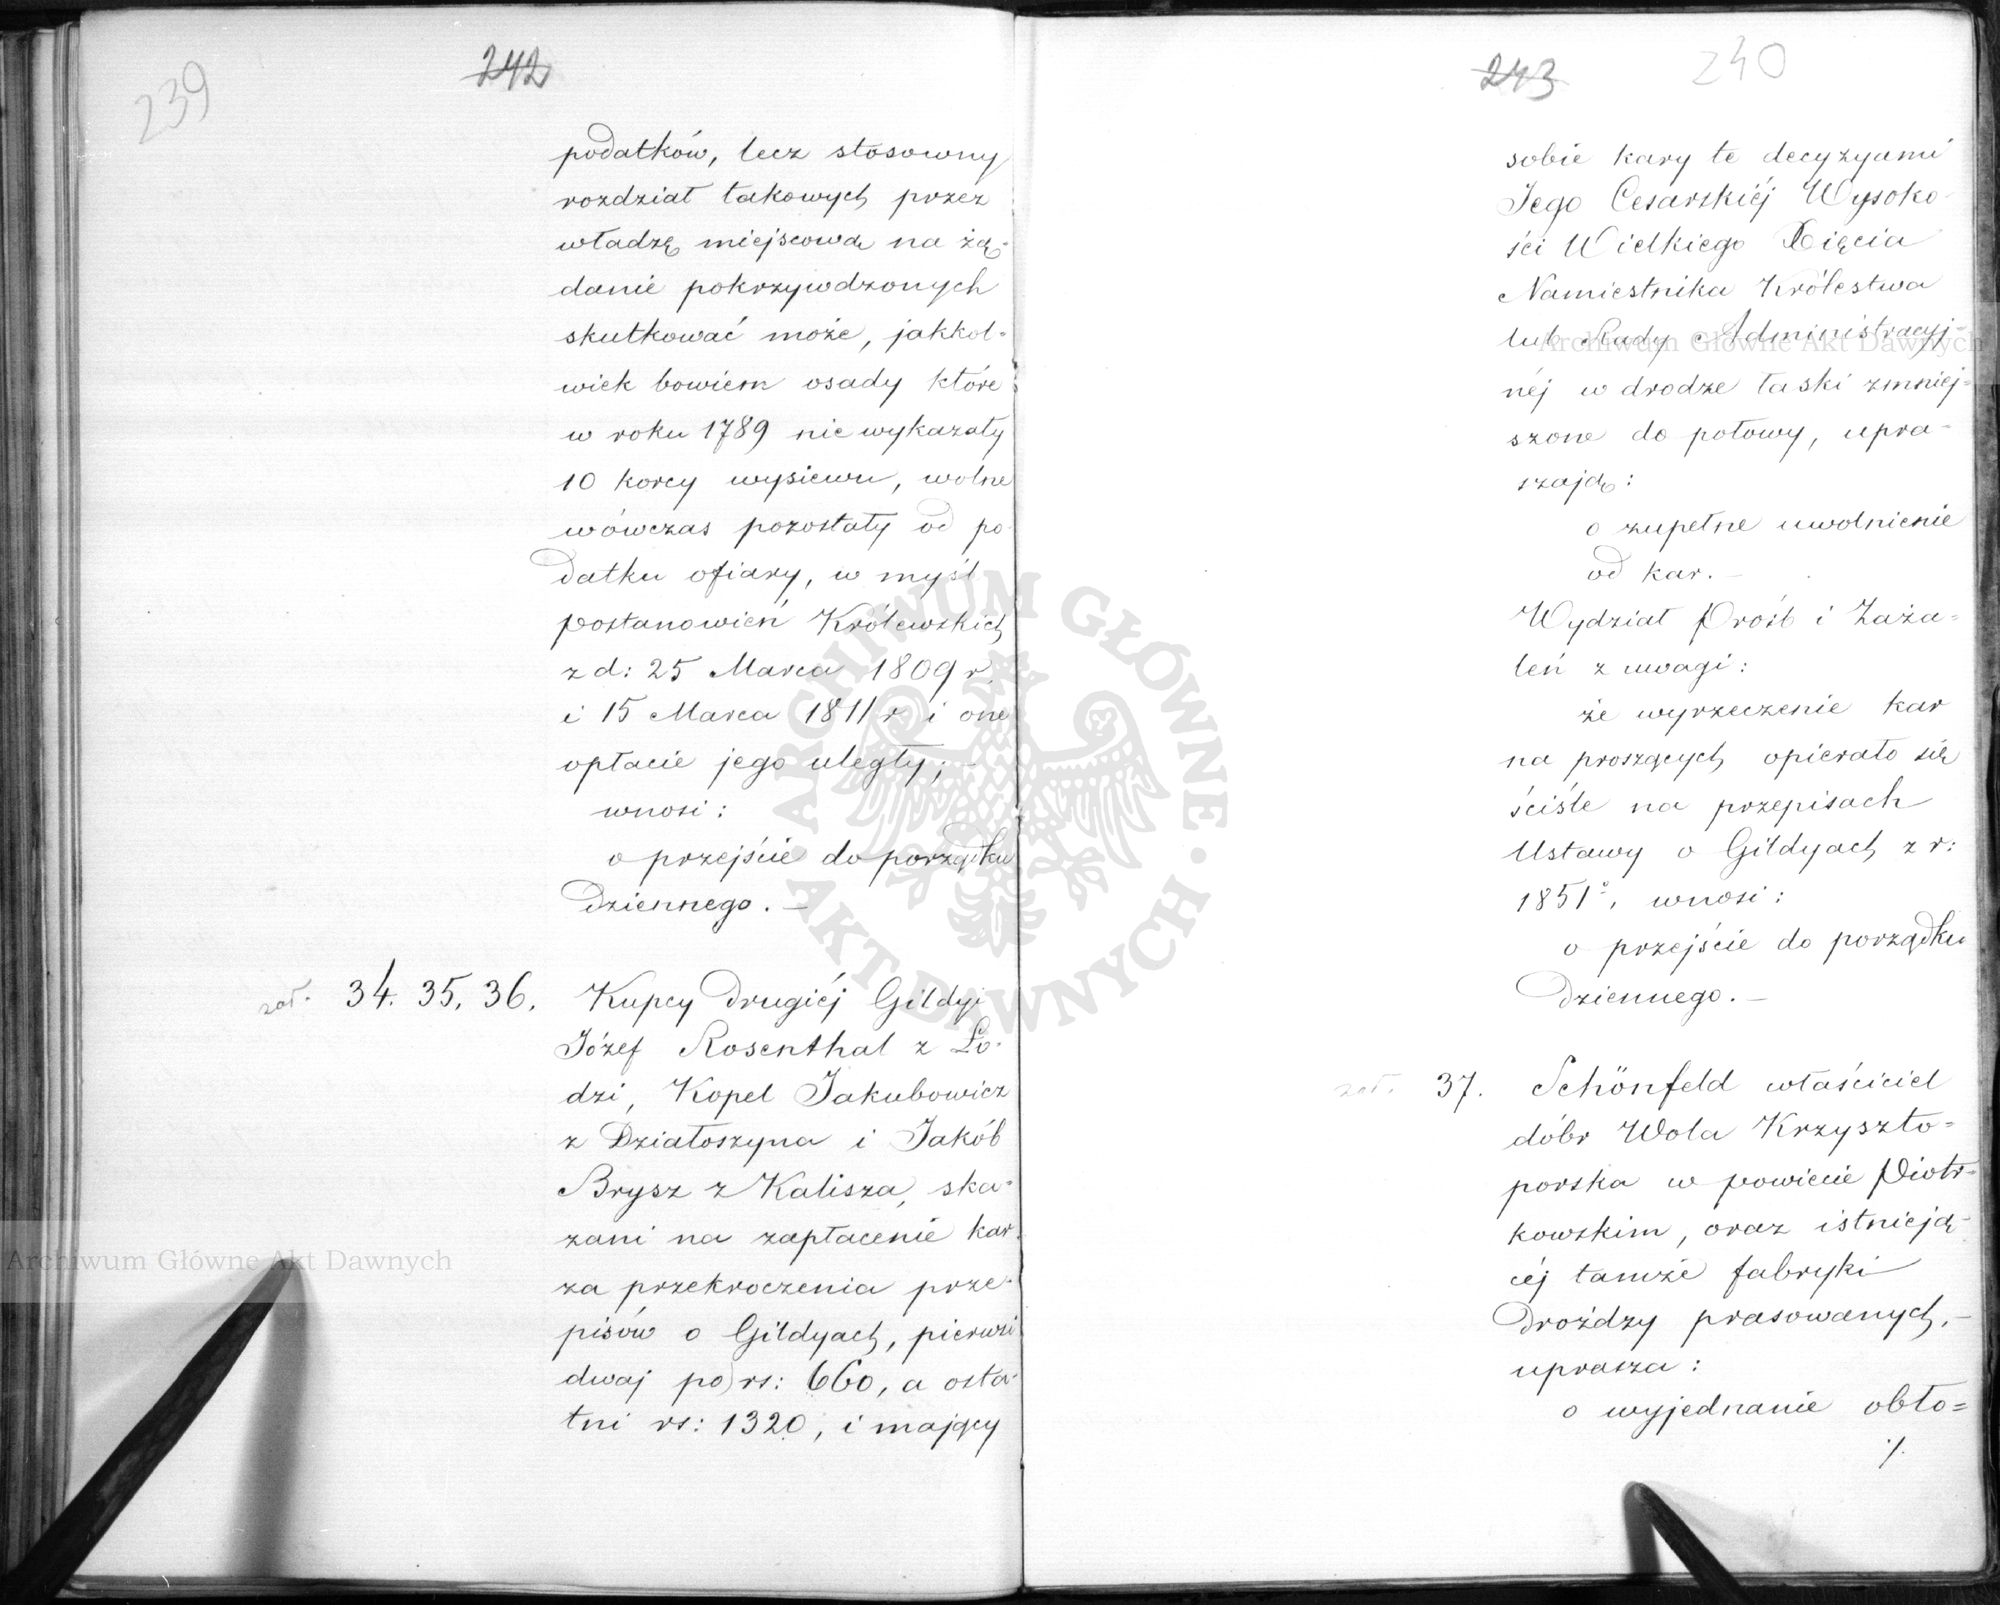 239
242
podatków, lecz stosowny
rozdział takowych przez
władzę miejscową na żą-
danie pokrzywdzonych
skutkować może, jakkol-
wiek bowiem osady które
w roku 1789 nie wykazały
10 korcy wysiewu, wolne
wówczas pozostały od po
datku ofiary, w myśl
postanowień Królewskich
z d: 25 Marca 1809 r.
i 15 Marca 1811 r i one
opłacie jego uległy; —
wnosi:
o przejście do porządku
dziennego. —
zał. 34. 35. 36. Kupcy drugiéj Gildyi
Józef Rosenthal z Ło-
dzi, Kopel Jakubowicz
z Działoszyna i Jakób
Brysz z Kalisza, ska-
zani na zapłacenie kar
za przekroczenia prze-
pisów o Gildyach, pierwsi
dwaj po rs: 660, a osta-
tni rs: 1320, i mający
243
240
sobie kary te decyzyami
Jego Cesarskiéj Wysoko-
ści Wielkiego Xięcia
Namiestnika Królestwa
lub Rady Administracyj-
néj w drodze łaski zmniej-
szone do połowy, upra-
szają:
o zupełne uwolnienie
od kar. —
Wydział Próśb i Zaża-
leń z uwagi:
że wyrzeczenie kar
na proszących opierało się
ściśle na przepisach
Ustawy o Gildyach z r:
1851, wnosi:
o przejście do porządku
dziennego. —
zał. 37. Schönfeld właściciel
dóbr Wola Krzyszto-
porska w powiecie Piotr-
kowskim, oraz istnieją-
céj tamże fabryki
drożdży prasowanych, —
uprasza:
o wyjednanie obło=
./.
Archiwum Główne Akt Dawnych
Archiwum Główne Akt Dawnych
ARCHIWUM GŁÓWNE • AKT DAWNYCH •